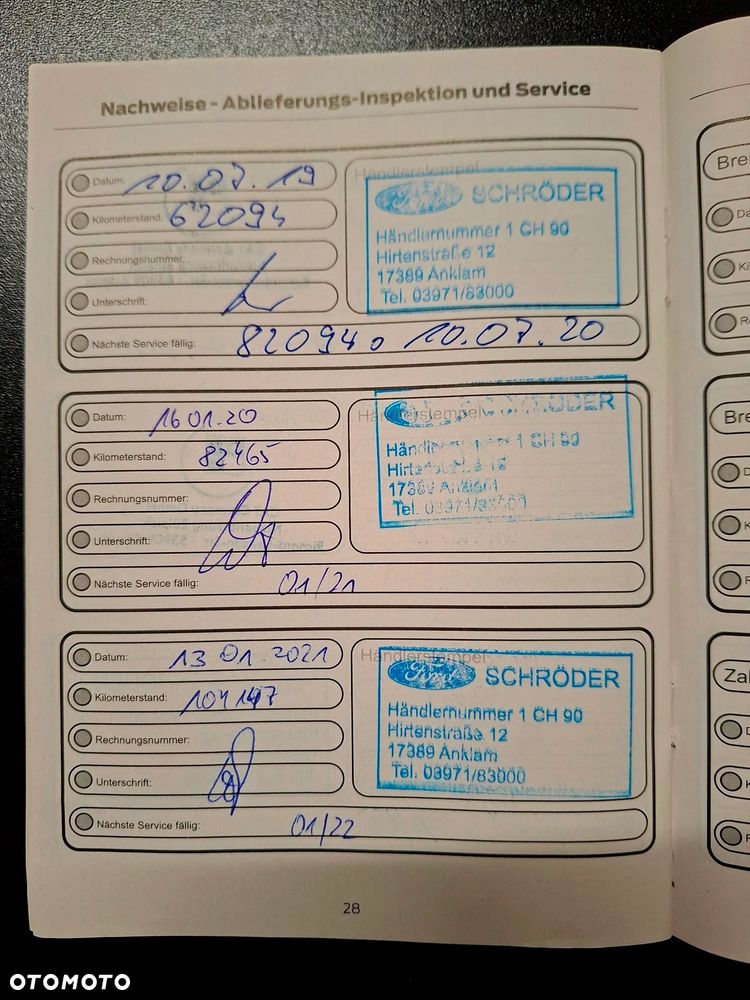 Nachweise - Ablieferungs-Inspektion und Service
Datum: 10.07.19
Kilometerstand: 62094
Rechnungsnummer:
Unterschrift:
Nächste Service fällig: 82094 o 10.07.20
Händlerstempel
Ford SCHRÖDER
Händlernummer 1 CH 90
Hirtenstraße 12
17389 Anklam
Tel. 03971/83000
Datum: 16 01.20
Kilometerstand: 82465
Rechnungsnummer:
Unterschrift:
Nächste Service fällig: 01/21
Händlerstempel
SCHRÖDER
Händlernummer 1 CH 90
Hirtenstraße 12
17389 Anklam
Tel. 03971/83000
Datum: 13 01.2021
Kilometerstand: 104147
Rechnungsnummer:
Unterschrift:
Nächste Service fällig: 01/22
Händlerstempel
Ford SCHRÖDER
Händlernummer 1 CH 90
Hirtenstraße 12
17389 Anklam
Tel. 03971/83000
28
Bre
Bre
Za
OTOMOTO